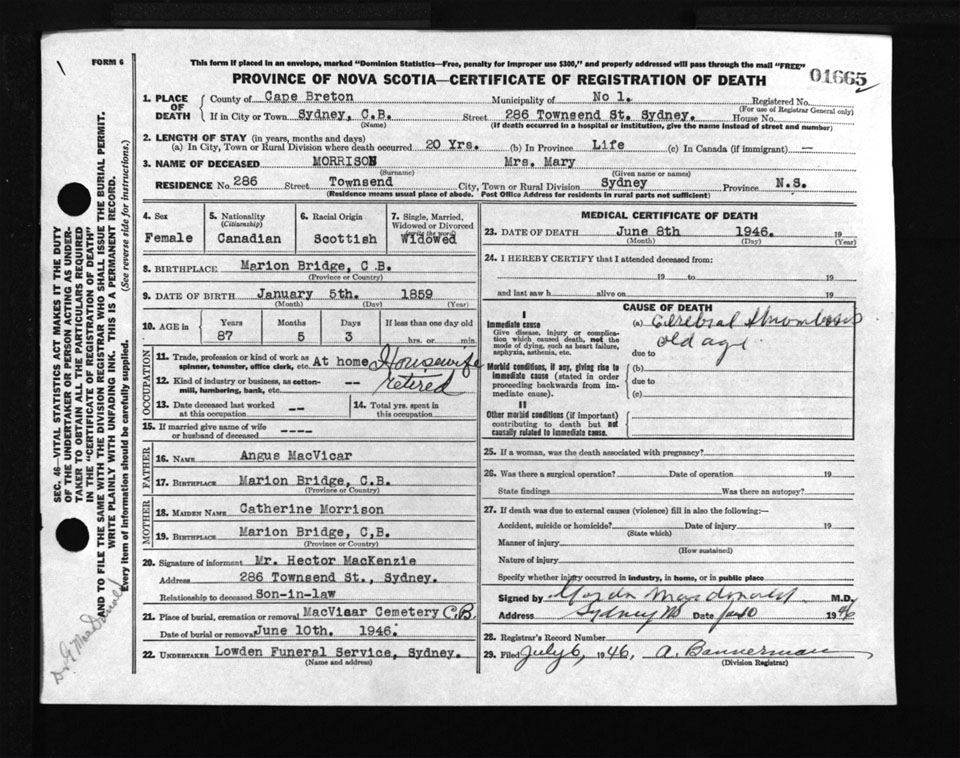 FORM 6
This form if placed in an envelope, marked "Dominion Statistics—Free, penalty for improper use $300," and properly addressed will pass through the mail "FREE"
PROVINCE OF NOVA SCOTIA—CERTIFICATE OF REGISTRATION OF DEATH
01665
1. PLACE OF DEATH
County of Cape Breton Municipality of No 1. Registered No.
(For use of Registrar General only)
If in City or Town Sydney, C.B. Street 286 Townsend St. Sydney. House No.
(Name) (If death occurred in a hospital or institution, give the name instead of street and number)
2. LENGTH OF STAY (in years, months and days)
(a) In City, Town or Rural Division where death occurred 20 Yrs. (b) In Province Life (c) In Canada (if immigrant) —
3. NAME OF DECEASED MORRISON Mrs. Mary
(Surname) (Given name or names)
RESIDENCE No. 286 Street Townsend City, Town or Rural Division Sydney Province N.S.
(Residence means usual place of abode. Post Office Address for residents in rural parts not sufficient)
4. Sex
Female
5. Nationality
(Citizenship)
Canadian
6. Racial Origin
Scottish
7. Single, Married,
Widowed or Divorced
(write the word)
Widowed
8. BIRTHPLACE Marion Bridge, C.B.
(Province or Country)
9. DATE OF BIRTH January 5th. 1859
(Month) (Day) (Year)
10. AGE in Years Months Days If less than one day old
87 5 3 hrs. or min.
OCCUPATION
11. Trade, profession or kind of work as spinner, teamster, office clerk, etc. At home Housewife
12. Kind of industry or business, as cotton-mill, lumbering, bank, etc. -- retired
13. Date deceased last worked at this occupation --
14. Total yrs. spent in this occupation
15. If married give name of wife or husband of deceased ----
FATHER
16. NAME Angus MacVicar
17. BIRTHPLACE Marion Bridge, C.B.
(Province or Country)
MOTHER
18. MAIDEN NAME Catherine Morrison
19. BIRTHPLACE Marion Bridge, C,B.
(Province or Country)
20. Signature of informant Mr. Hector MacKenzie
Address 286 Townsend St., Sydney.
Relationship to deceased Son-in-law
21. Place of burial, cremation or removal MacViaar Cemetery C.B.
Date of burial or removal June 10th. 1946.
22. UNDERTAKER Lowden Funeral Service, Sydney.
(Name and address)
MEDICAL CERTIFICATE OF DEATH
23. DATE OF DEATH June 8th 1946. 19
(Month) (Day) (Year)
24. I HEREBY CERTIFY that I attended deceased from:
19 to 19
and last saw h alive on 19
CAUSE OF DEATH
I
Immediate cause
Give disease, injury or complication which caused death, not the mode of dying, such as heart failure, asphyxia, asthenia, etc.
(a) Cerebral thrombosis
old age
due to
Morbid conditions, if any, giving rise to immediate cause (stated in order proceeding backwards from immediate cause).
(b)
due to
(c)
II
Other morbid conditions (if important) contributing to death but not causally related to immediate cause.
25. If a woman, was the death associated with pregnancy?
26. Was there a surgical operation? Date of operation 19
State findings Was there an autopsy?
27. If death was due to external causes (violence) fill in also the following:—
Accident, suicide or homicide? Date of injury 19
(State which)
Manner of injury
(How sustained)
Nature of injury
Specify whether injury occurred in industry, in home, or in public place
Signed by Macdonald M.D.
Address Sydney NS Date 1946
28. Registrar's Record Number
29. Filed July 6, 1946, A. Bannerman
(Division Registrar)
SEC. 46—VITAL STATISTICS ACT MAKES IT THE DUTY
OF THE UNDERTAKER OR PERSON ACTING AS UNDER-
TAKER TO OBTAIN ALL THE PARTICULARS REQUIRED
IN THE "CERTIFICATE OF REGISTRATION OF DEATH"
AND TO FILE THE SAME WITH THE DIVISION REGISTRAR WHO SHALL ISSUE THE BURIAL PERMIT.
WRITE PLAINLY WITH UNFADING INK. THIS IS A PERMANENT RECORD.
Every item of information should be carefully supplied. (See reverse side for instructions.)